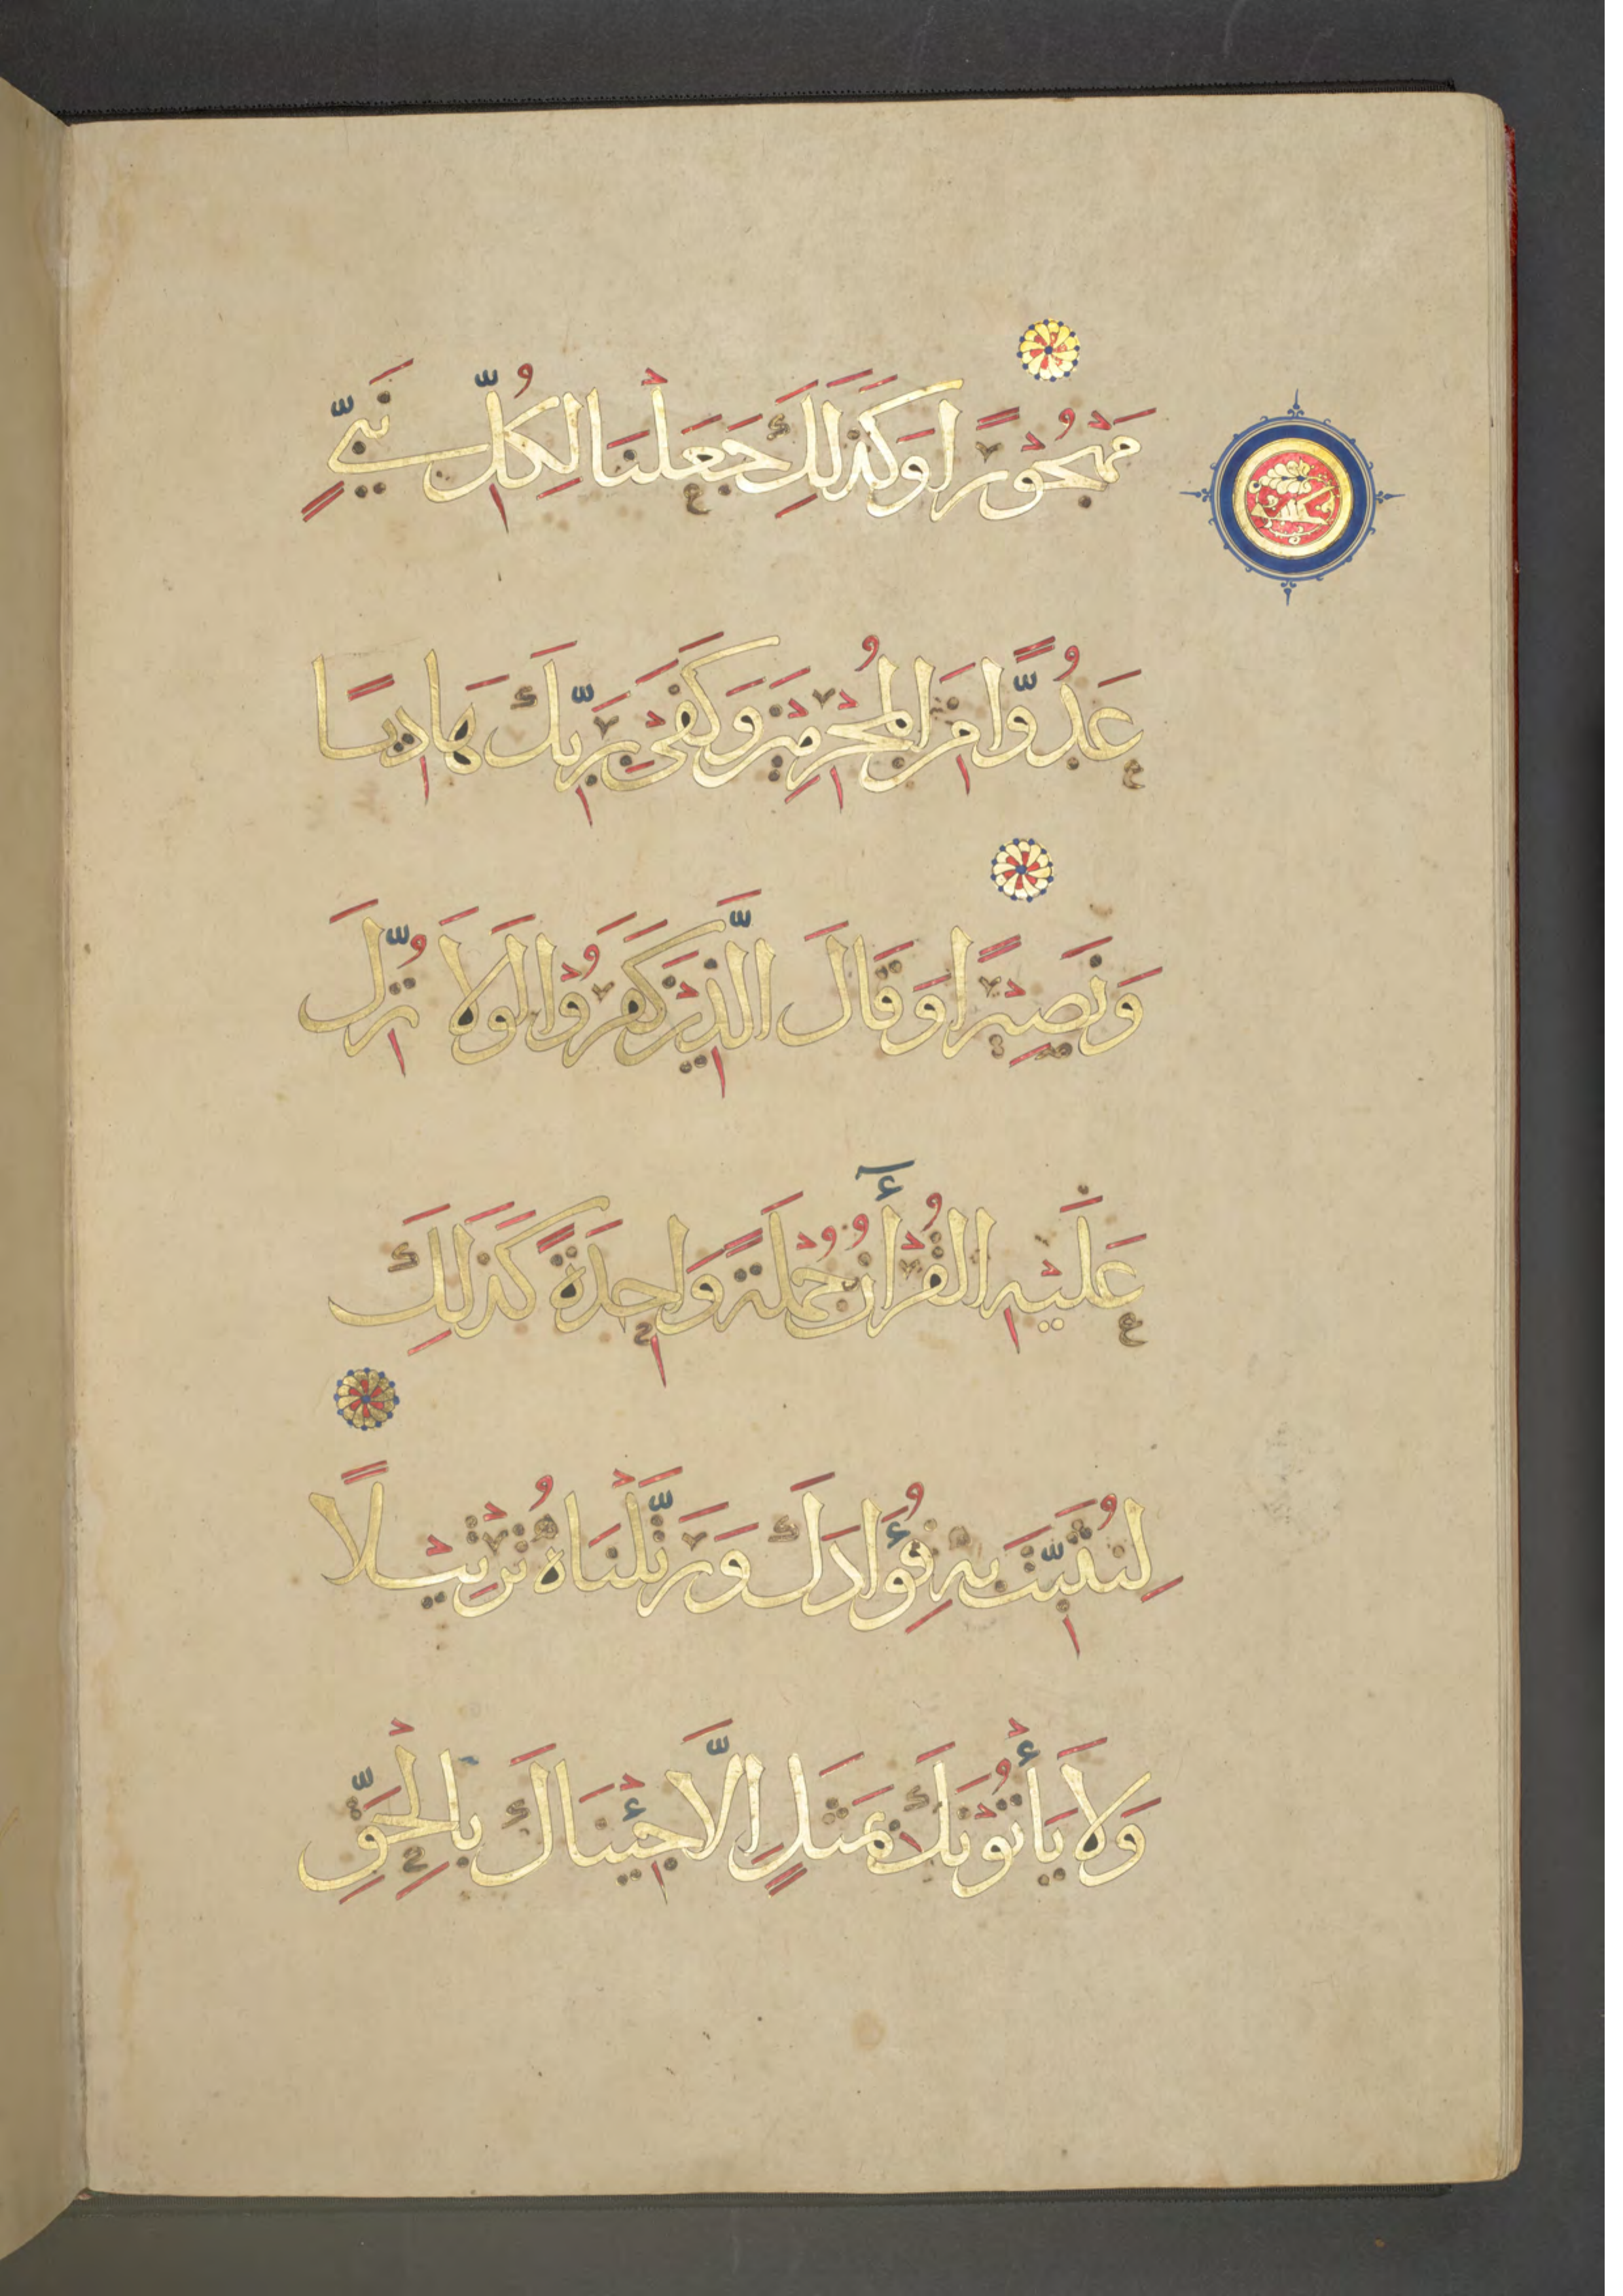 مَهْجُوْرًا وَكَذَلِكَ جَعَلْنَا لِكُلِّ نَبِيٍّ
عَدُوًّا مِنَ المُجْرِمِيْنَ وَكَفَىْ بِرَبِّكَ هَادِيًا
وَنَصِيْرًا وَقَالَ الَّذِيْنَ كَفَرُوْا لَوْلَا نُزِّلَ
عَلَيْهِ القُرْأٰنُ جُمْلَةً وَاحِدَةً كَذَلِكَ
لِنُثَبِّتَ بِهِ فُؤَادَكَ وَرَتَّلْنَاهُ تَرْتِيْلًا
وَلَا يَأْتُوْنَكَ بِمَثَلٍ اِلَّا جِئْنَاكَ بِالْحَقِّ